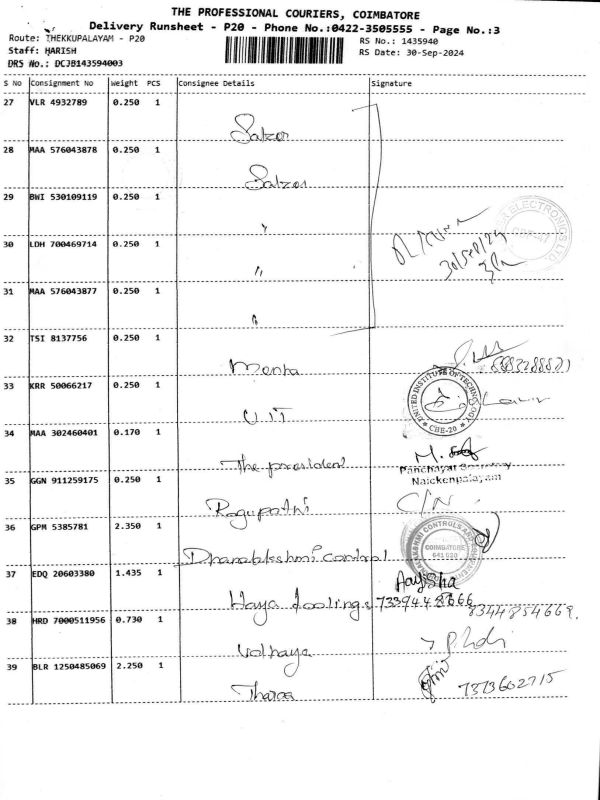 THE PROFESSIONAL COURIERS, COIMBATORE
Delivery Runsheet - P20 - Phone No.:0422-3505555 - Page No.:3
Route: THEKKUPALAYAM - P20
RS No.: 1435940
Staff: HARISH
RS Date: 30-Sep-2024
DRS No.: DCJB143594003
S No Consignment No Weight PCS Consignee Details Signature
27 VLR 4932789 0.250 1
Salzer
28 MAA 576043878 0.250 1
Salzer
29 BWI 530109119 0.250 1
ELECTRONICS LTD.
30 LDH 700469714 0.250 1
"
30/Sep/24
31 MAA 576043877 0.250 1
"
32 TSI 8137756 0.250 1
33 KRR 50066217 0.250 1
UNITED INSTITUTE OF TECHNOLOGY
* CBE-20 *
UIT
34 MAA 302460401 0.170 1
The president
Panchayat Secretary
Naickenpalayam
35 GGN 911259175 0.250 1
Ragupathi
36 GPM 5385781 2.350 1
COIMBATORE
641 020
Dhanalakshmi control
37 EDQ 20603380 1.435 1
Aayisha
Haya toolings
38 HRD 7000511956 0.730 1
8344854669.
39 BLR 1250485069 2.250 1
7373602715